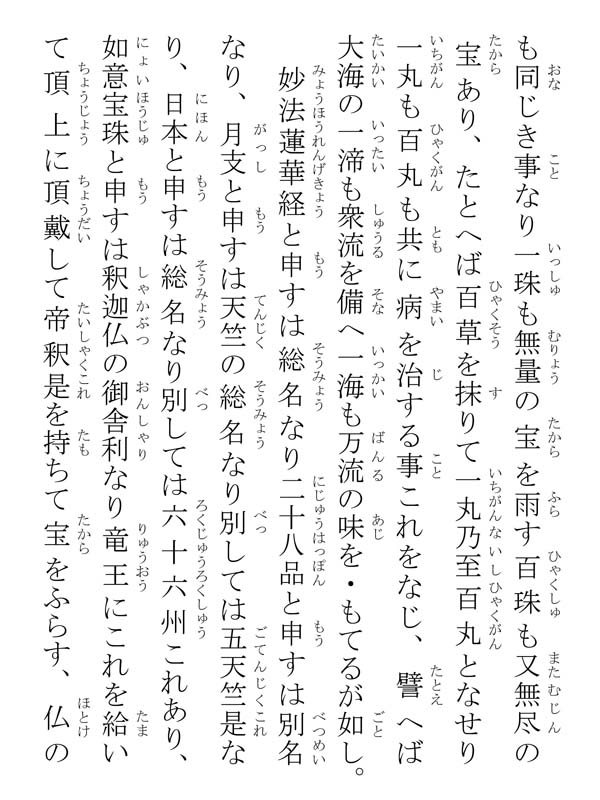 も同じき事なり一珠も無量の宝を雨す百珠も又無尽の
宝あり、たとへば百草を抹りて一丸乃至百丸となせり
一丸も百丸も共に病を治する事これをなじ、譬へば
大海の一渧も衆流を備へ一海も万流の味を・もてるが如し。
妙法蓮華経と申すは総名なり二十八品と申すは別名
なり、月支と申すは天竺の総名なり別しては五天竺是な
り、日本と申すは総名なり別しては六十六州これあり、
如意宝珠と申すは釈迦仏の御舎利なり竜王にこれを給い
て頂上に頂戴して帝釈是を持ちて宝をふらす、仏の